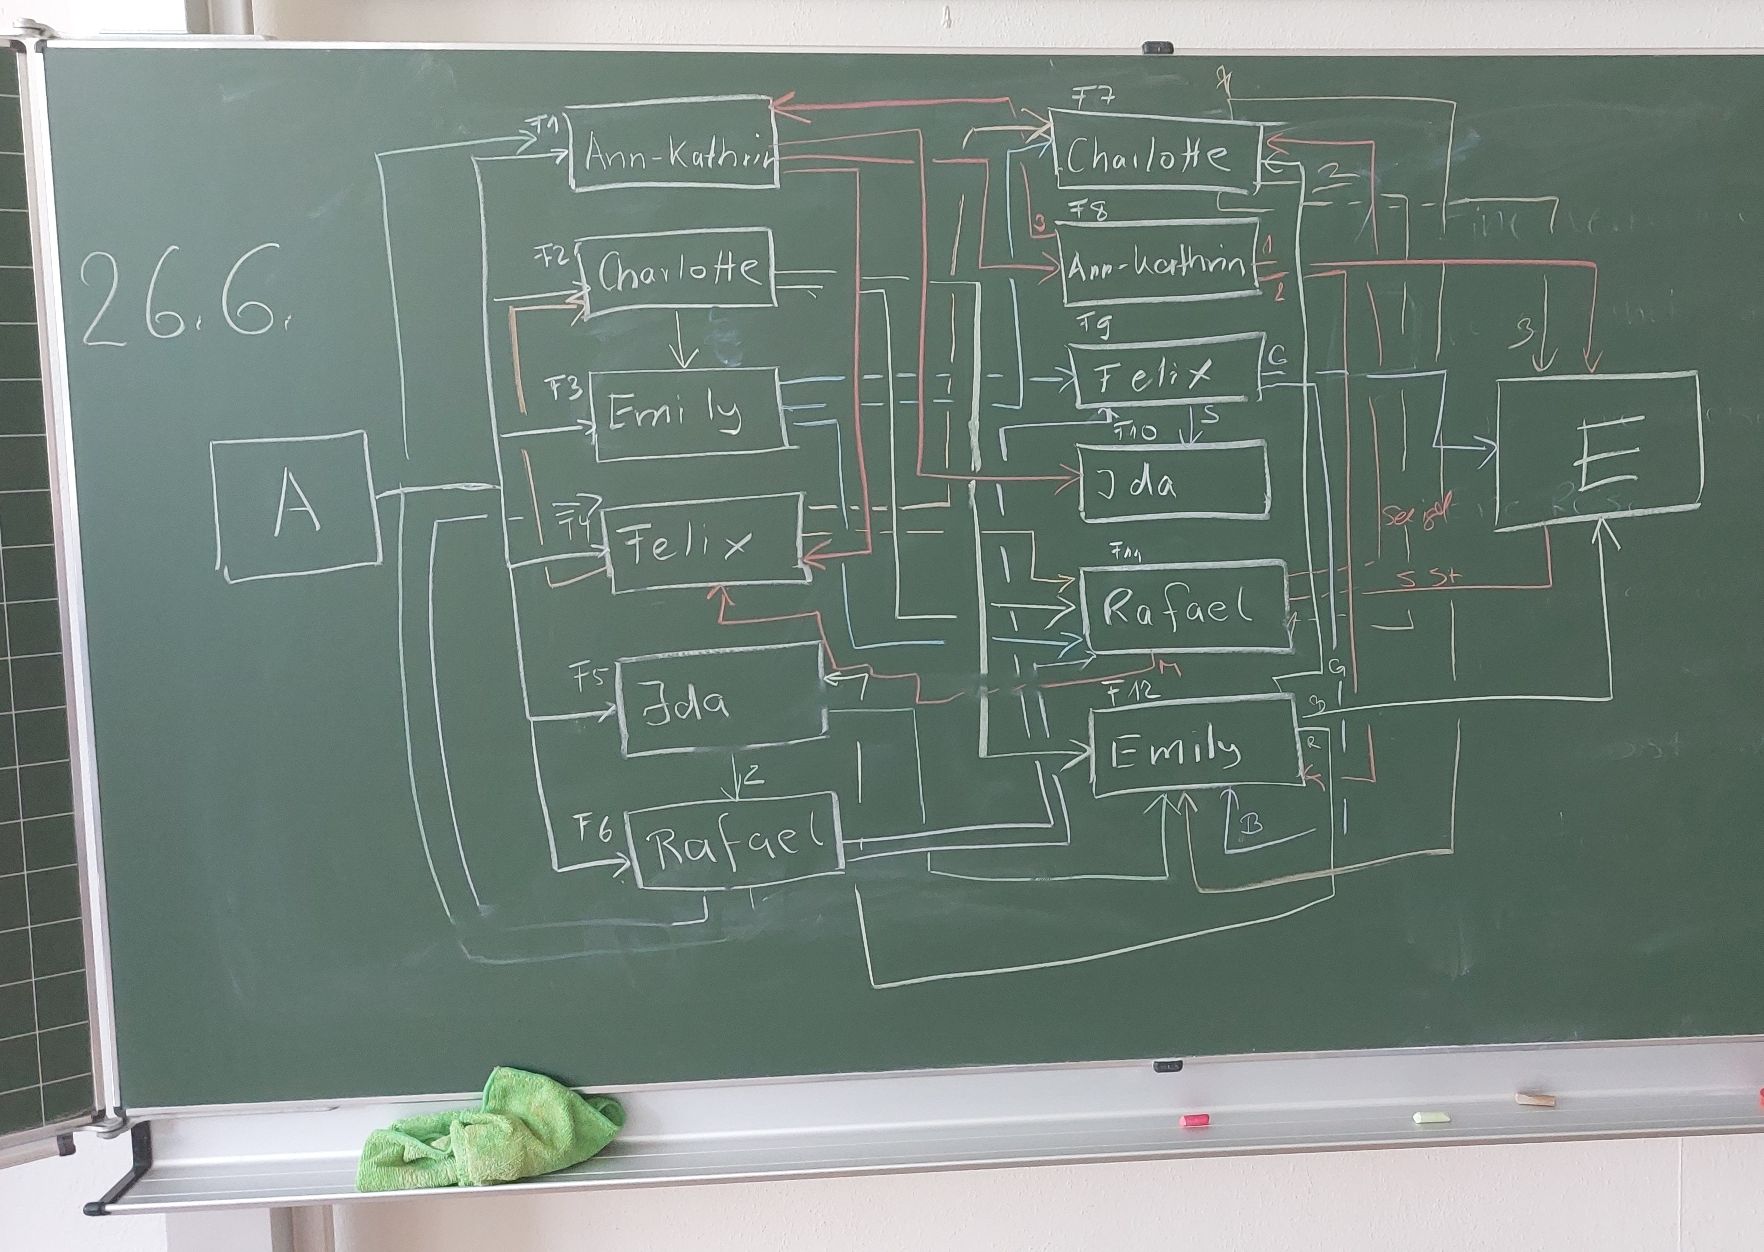 26.6.
A
F1
Ann-Kathrin
F2
Charlotte
F3
Emily
F4
Felix
F5
Ida
2
F6
Rafael
F7
Charlotte
2
F8
3
Ann-Kathrin
1
2
F9
Felix
G
S
F10
Ida
F11
Rafael
M
F12
Emily
G
R
B
3
E
S St